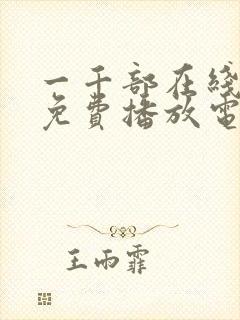 一千部在线
免費播放電
王雨霏